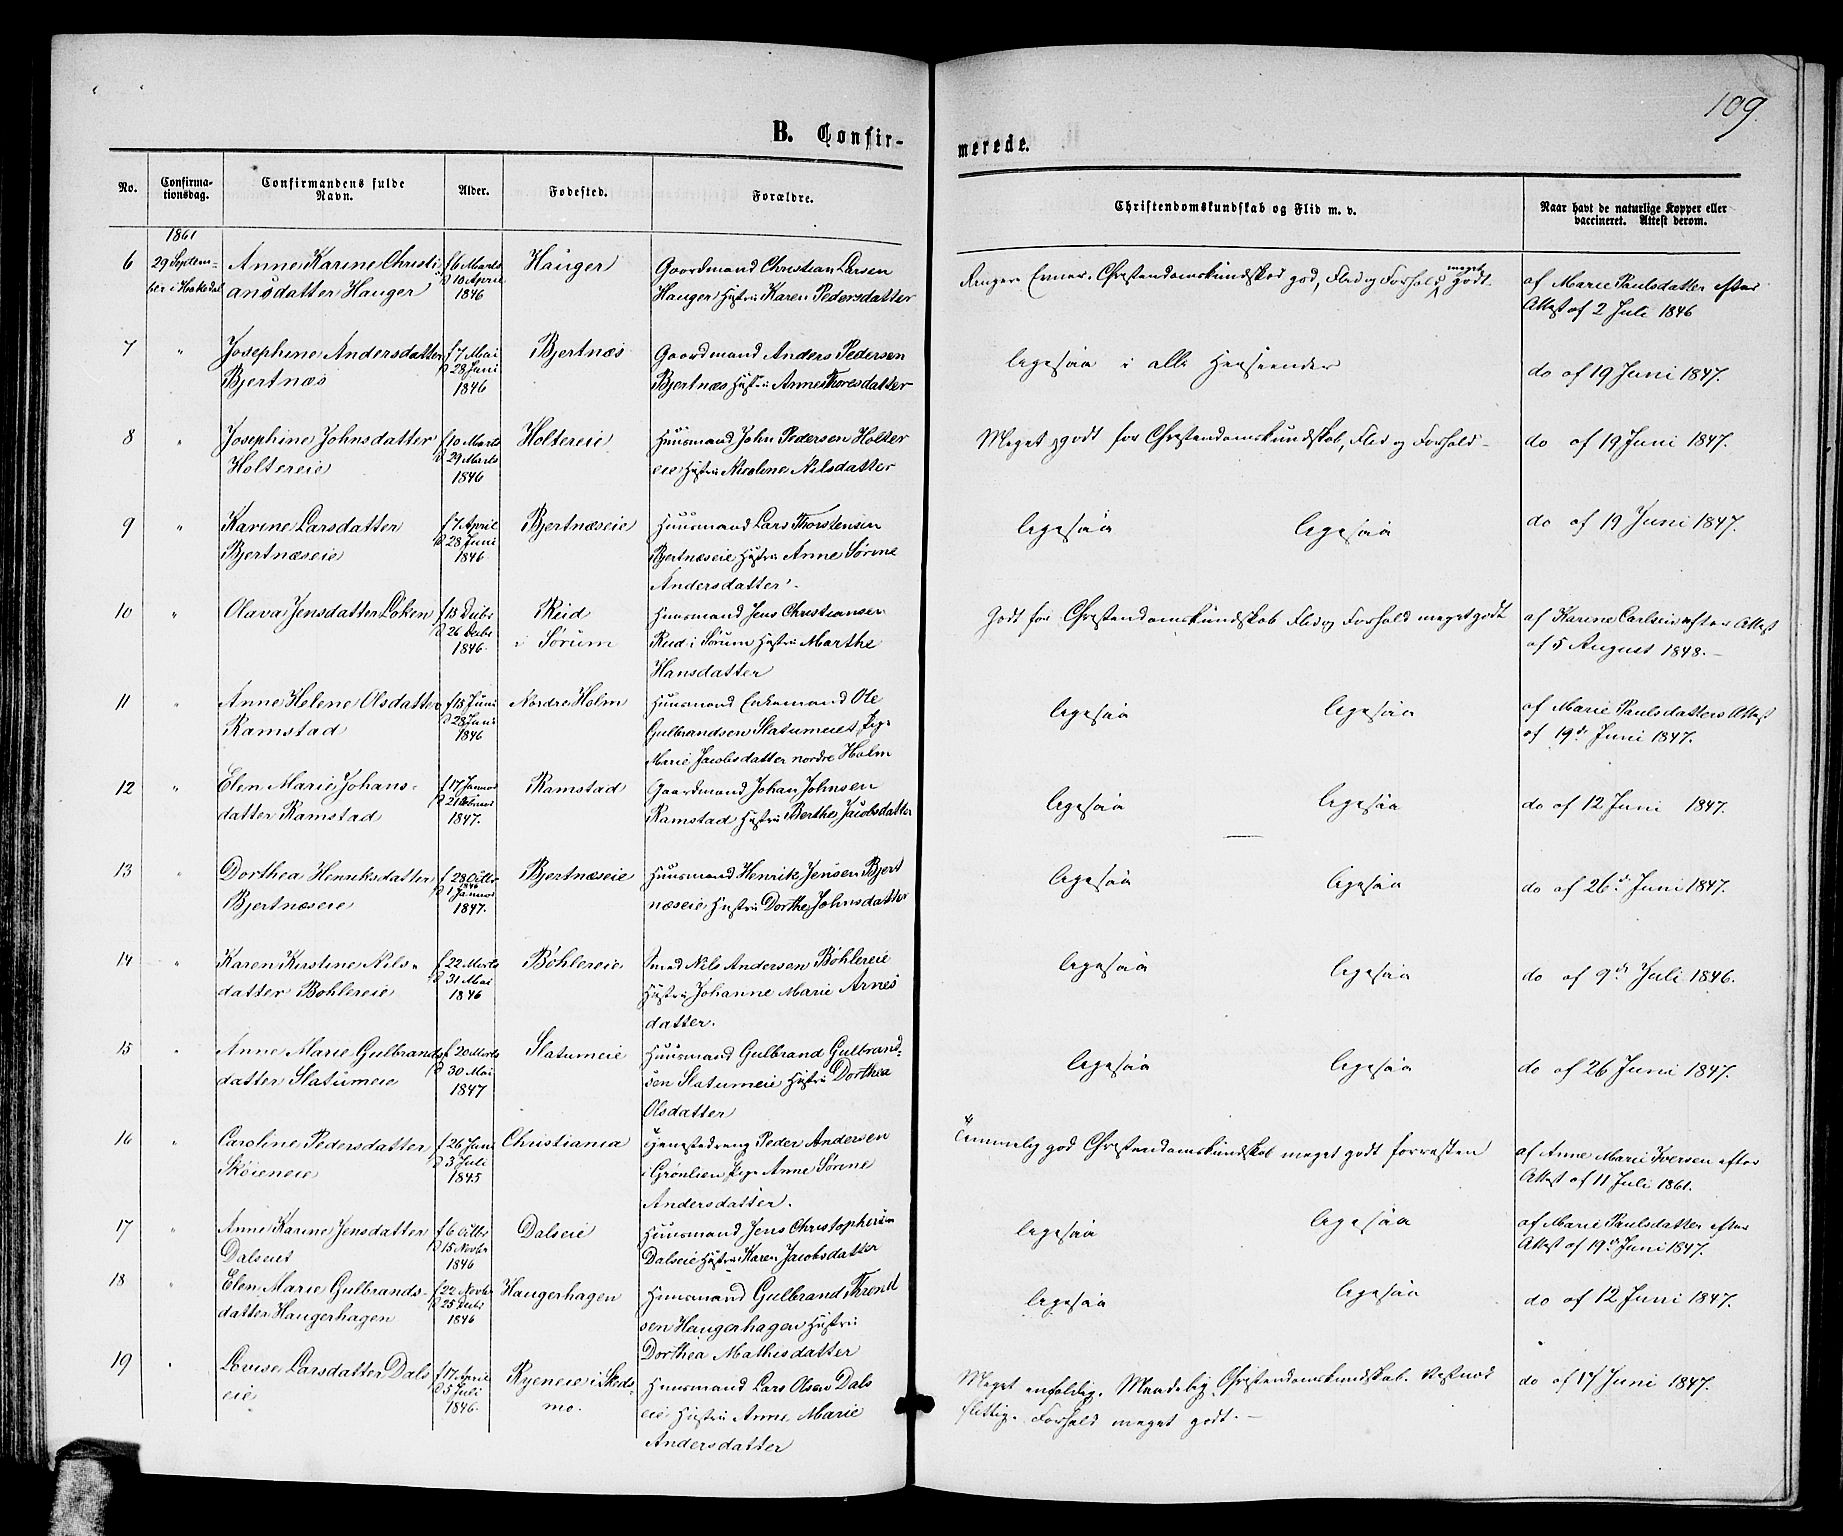 109.
B. Confir-
merede.
No.
Confirma-
tionsdag.
Confirmandens fulde
Navn.
Alder.
Fødested.
Forældre.
Christendomskundskab og Flid m. v.
Naar havt de naturlige Kopper eller
vaccineret. Attest derom.
1861
6 29 Septem- Anne Karine Christi- f 6 Marts Hauger Gaardmand Christian Larsen
ber i Hakedal ansdatter Hauger d 10 April Hauger Hustru Karen Pedersdatter
1846
Christendomskundskab god, Flid og Forhold meget Godt.
af Marie Paulsdatter efter
Attest af 2 Juli 1846
7 " Josephine Andersdatter f 7 Mai Bjertnæs Gaardmand Anders Pedersen
Bjertnæs d 28 Juni Bjertnæs Hustru Anne Thoresdatter
1846
ligesaa i alle Henseender
do af 19 Juni 1847.
8 " Josephine Johnsdatter f 10 Marts Holtereie Huusmand John Pedersen Holter
Holtereie d 29 Marts eie Hustru Nicoline Nilsdatter
1846
Meget godt for Christendomskundskab, Flid og Forhold -
do af 19 Juni 1847.
9 " Karine Larsdatter f 7 April Bjertnæseie Huusmand Lars Thorstensen
Bjertnæseie d 28 Juni Bjertnæseie Hustru Anne Sørine
1846 Andersdatter -
ligesaa ligesaa
do af 19 Juni 1847.
10 " Olava Jensdatter Løken f 13 Decbr Reid Huusmand Jens Christiansen
d 26 Decbr i Sørum Reid i Sørum Hustru Marthe
1846. Hansdatter
Godt for Christendomskundskab Flid og Forhold meget godt
af Karine Carlseie efter Attest
af 5 August 1848. -
11 " Anne Helene Olsdatter f 13 Juni Nordre Holm Huusmand Enkemand Ole
Ramstad d 28 Juni Gulbrandsen Slatumeiet Pige
1846 Marie Jacobsdatter nordre Holm
ligesaa ligesaa
af Marie Paulsdatters Attest
af 19de Juni 1847.
12 " Elen Marie Johans- f 17 Januar Ramstad Gaardmand Johan Johnsen
datter Ramstad d 21 Februar Ramstad Hustru Berthe Jacobsdatter
1847.
ligesaa ligesaa
do af 12 Juni 1847.
13 " Dorthea Henriksdatter f 28 Octbr Bjertnæseie Huusmand Henrik Jensen Bjert
Bjertnæseie 1846 d 1 Januar næseie Hustru Dorthe Johnsdatter
1847.
ligesaa ligesaa
do af 26de Juni 1847.
14 " Karen Kirstine Nils- f 22 Marts Bøhlereie Smed Nils Andersen Bøhlereie
datter Bøhlereie d 31 Mai Hustru Johanne Marie Arnes
1846 datter.
ligesaa ligesaa
do af 9de Juli 1846.
15 " Anne Marie Gulbrands f 20 Marts Slatumeie Huusmand Gulbrand Gulbrand-
datter Slatumeie d 30 Mai sen Slatumeie Hustru Dorthea
1847 Olsdatter
ligesaa ligesaa
do af 26 Juni 1847.
16 " Caroline Pedersdatter f 26 Juni Christiania Peder Andersen
Skøieneie d 3 Juli i Grønlien Pige Anne Sørine
1845 Andersdatter.
Temmelig god Christendomskundskab meget godt forresten
af Anne Marie Iversen efter
Attest af 11 Juli 1861.
17 " Anne Karine Jensdatter f 6 Octbr Dalseie Huusmand Jens Christophersen
Dalseiet d 15 Novbr Dalseie Hustru Karen Jacobsdatter
1846
ligesaa ligesaa
af Marie Paulsdatter efter
Attest af 19de Juni 1847.
18 " Elen Marie Gulbrands- f 22 Novbr Haugerhagen Huusmand Gulbrand Thrond
datter Haugerhagen d 25 Decbr sen Haugerhagen Hustru
1846 Dorthea Mathisdatter
ligesaa ligesaa
do af 12 Juni 1847.
19 " Lovise Larsdatter Dals f 17 April Ryeneie i Skeds- Huusmand Lars Olsen Dals
eie d 5 Juli mo. eie Hustru Anne Marie
1846. Andersdatter
Meget enfoldig. Maadelig Christendomskundskab.
flittig. Forhold meget godt. -
do af 17 Juni 1847.